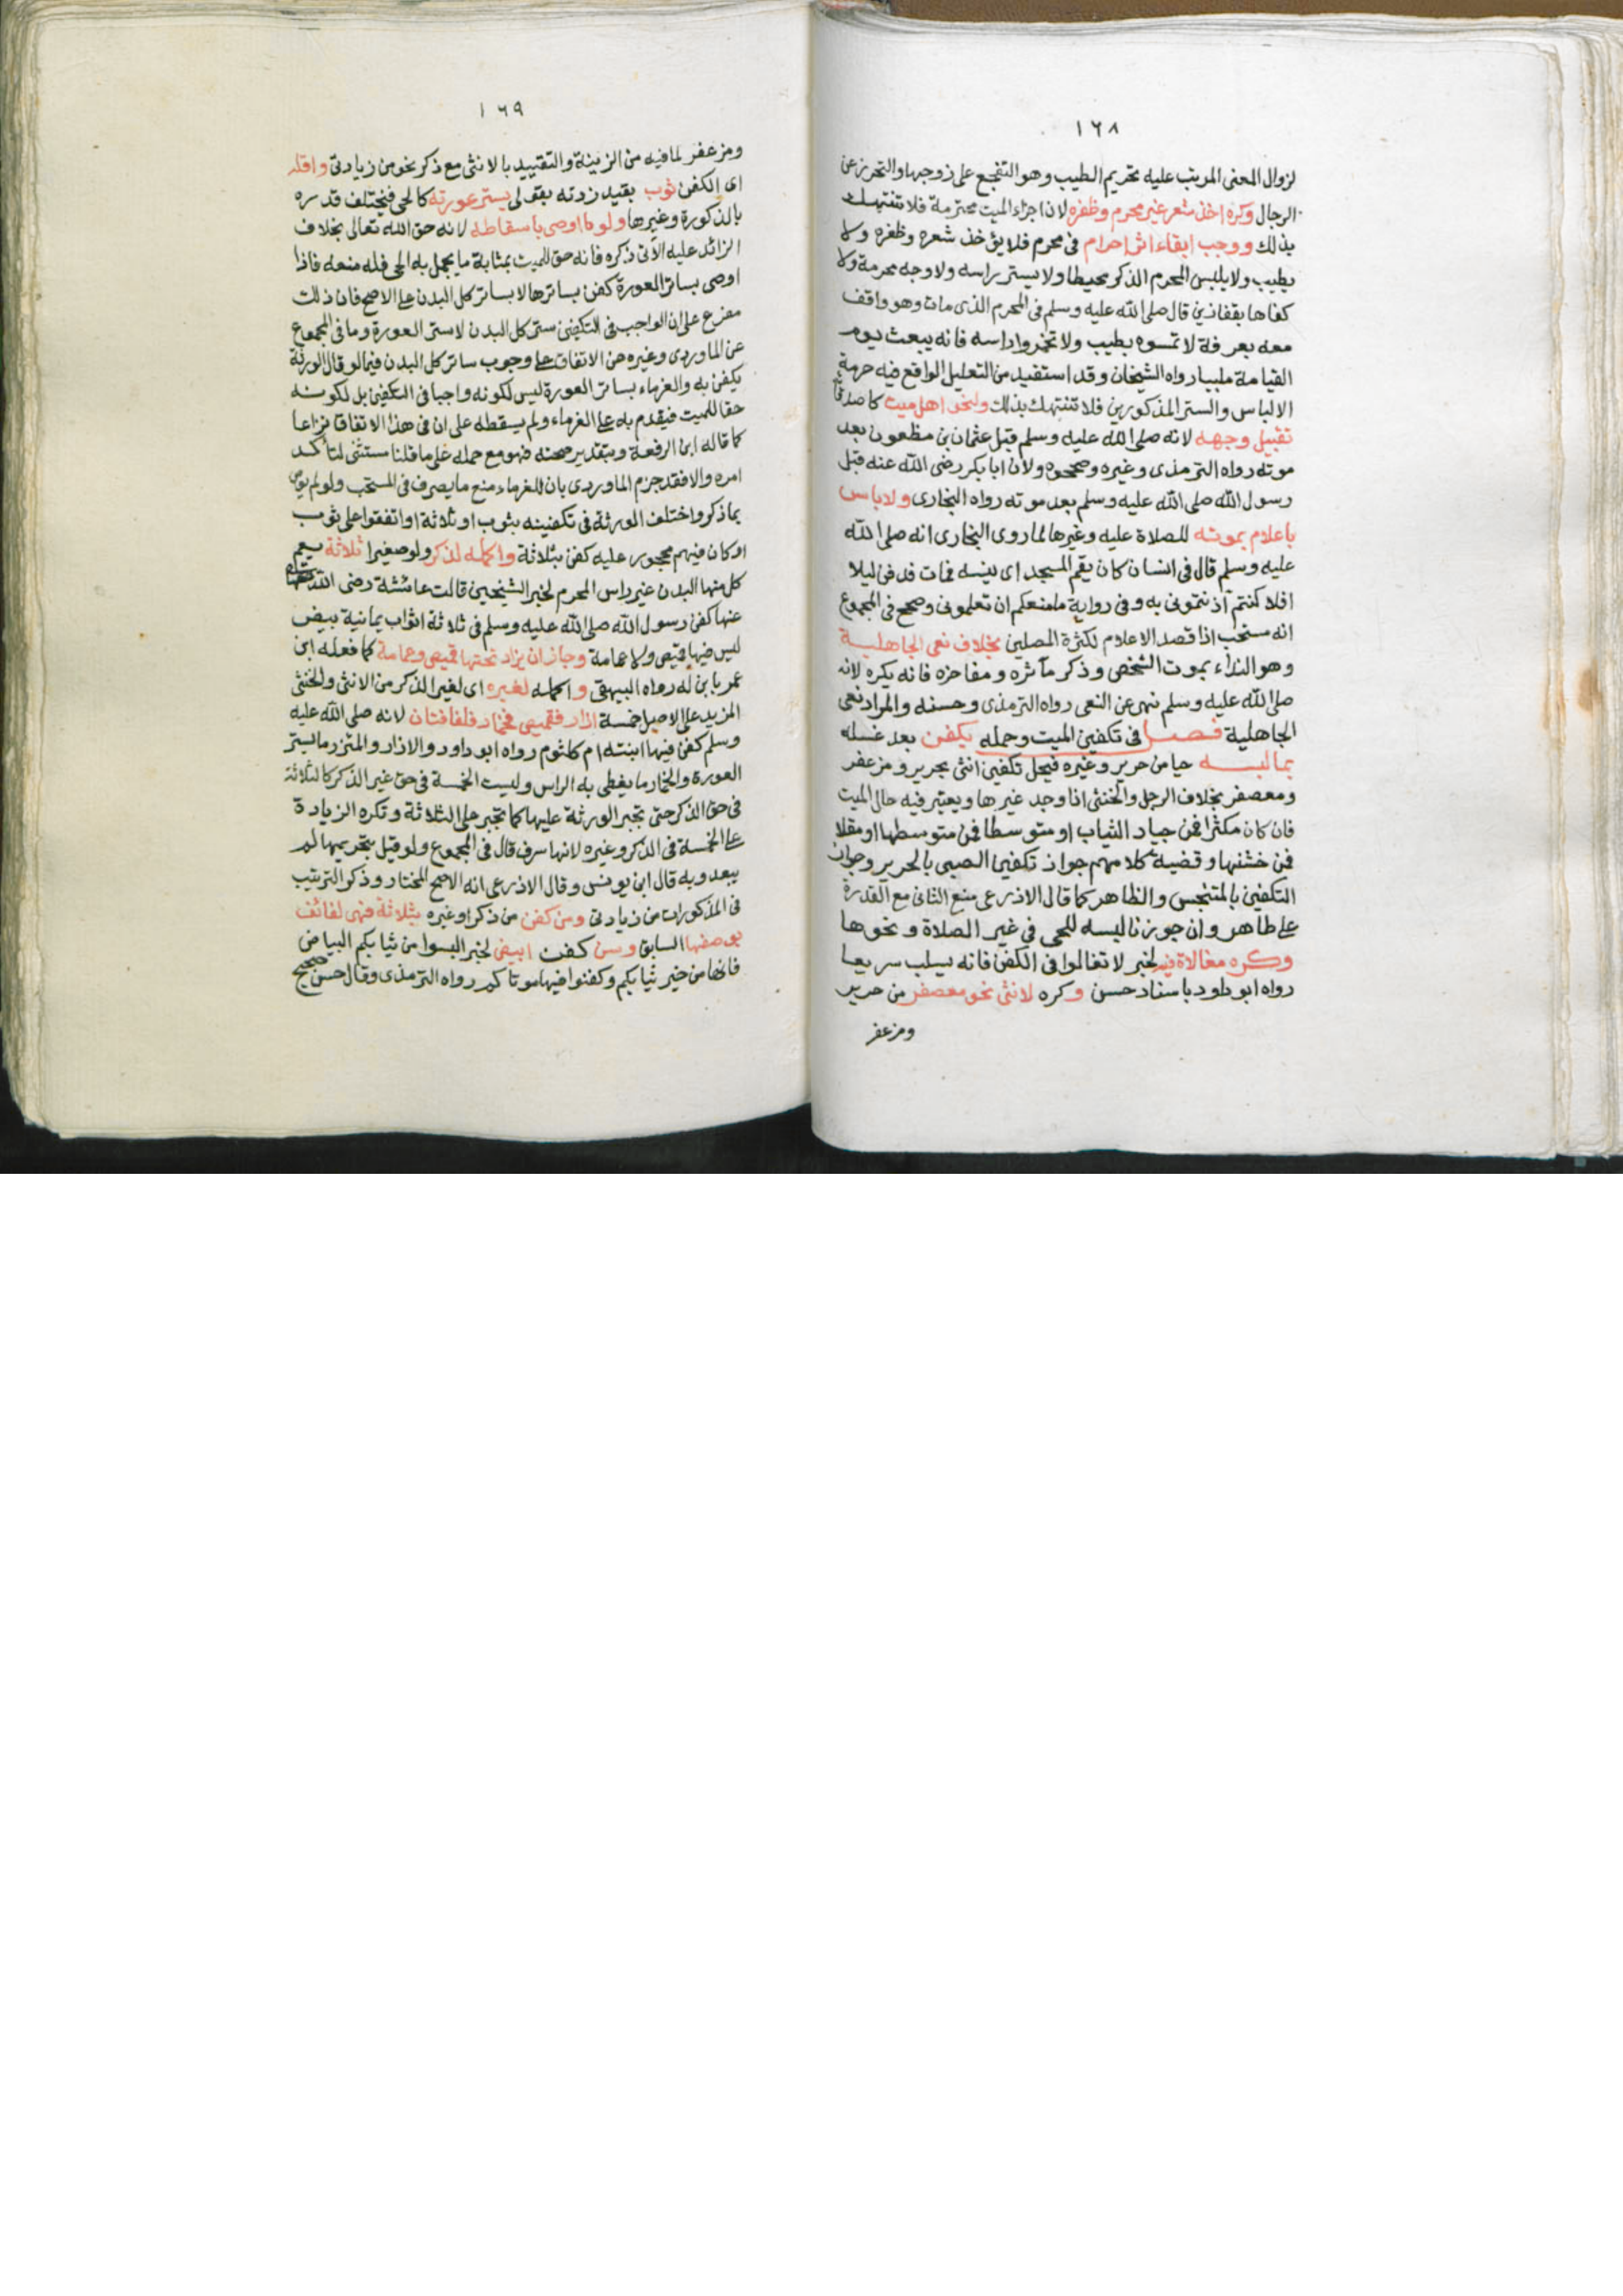 ١٦٨
لزوال المعنى المرتب عليه تحريم الطيب وهو التفجع على زوجها والتحرز عن
الرجال وكره اخذ شعر غير محرم وظفره لان اجزاء الميت محترمة فلا تنتهك
بذلك ووجب ابقاء اثر احرام في محرم فلا يؤخذ شعره وظفره ولا
يطيب ولا يلبس المحرم الذكر محيطا ولا يستر راسه ولا وجه محرمة ولا
كفاها بقفازين قال صلى الله عليه وسلم في المحرم الذي مات وهو واقف
معه بعرفة لا تمسوه بطيب ولا تخمروا راسه فانه يبعث يوم
القيامة ملبيا رواه الشيخان وقد استفيد من التعليل الواقع فيه حرمة
الالباس والستر المذكورين فلا تنتهك بذلك ولنحو اهل ميت كاصدقائه
تقبيل وجهه لانه صلى الله عليه وسلم قبل عثمان بن مظعون بعد
موته رواه الترمذي وغيره وصححوه ولان ابا بكر رضى الله عنه قبل
رسول الله صلى الله عليه وسلم بعد موته رواه البخارى ولا باس
باعلام بموته للصلاة عليه وغيرها لما روى البخارى انه صلى الله
عليه وسلم قال في انسان كان يقم المسجد اى يكنسه فمات فدفن ليلا
افلا كنتم آذنتمونى به وفى رواية ما منعكم ان تعلمونى وصحح في المجموع
انه مستحب اذا قصد الاعلام لكثرة المصلين بخلاف نعى الجاهلية
وهو النداء بموت الشخص وذكر مآثره ومفاخره فانه يكره لانه
صلى الله عليه وسلم نهى عن النعى رواه الترمذى وحسنه والمراد نعى
الجاهلية فصل فى تكفين الميت وحمله يكفن بعد غسله
بما لبسه حيا من حرير وغيره فيحل تكفين انثى بحرير ومزعفر
ومعصفر بخلاف الرجل والخنثى اذا وجد غيرها ويعتبر فيه حال الميت
فان كان مكثرا فمن جياد الثياب او متوسطا فمن متوسطها او مقلا
فمن خشنها وقضية كلامهم جواز تكفين الصبى بالحرير وجواز
التكفين بالمتنجس والظاهر كما قال الاذرعى منع الثانى مع القدرة
على طاهر وان جوزنا لبسه للحى فى غير الصلاة ونحوها
وكره مغالاة فيه لخبر لا تغالوا فى الكفن فانه يسلب سريعا
رواه ابو داود باسناد حسن وكره لانثى نحو معصفر من حرير
ومزعفر
١٦٩
ومزعفر لما فيه من الزينة والتقييد بالانثى مع ذكر نحو من زيادتى واقله
اى الكفن ثوب بقيد زدته بقولى يستر عورته كالحى فيختلف قدره
بالذكورة وغيرها ولو اوصى باسقاطه لانه حق الله تعالى بخلاف
الزائد عليه الآتى ذكره فانه حق للميت بمثابة ما يجمل به الحى فله منعه فاذا
اوصى بساتر العورة كفن بساترها لا بساتر كل البدن على الاصح فان ذلك
مفرع على ان الواجب فى التكفين ستر كل البدن لا ستر العورة وما فى المجموع
عن الماوردى وغيره من الاتفاق على وجوب ساتر كل البدن فيما لو قال الورثة
يكفن به والغرماء بساتر العورة ليس لكونه واجبا فى التكفين بل لكونه
حقا للميت فيقدم به على الغرماء ولم يسقطه على ان فى هذا الاتفاق نزاعا
كما قاله ابن الرفعة وبتقدير صحته فهو مع حمله على ما قلنا مستثنى لتاكد
امره والا فقد جزم الماوردى بان للغرماء منع ما يصرف فى المستحب ولو لم يوص
بما ذكر واختلف الورثة فى تكفينه بثوب او ثلاثة او اتفقوا على ثوب
او كان فيهم محجور عليه كفن بثلاثة واكمله لذكر ولو صغيرا ثلاثة يعم
كل منها البدن غير راس المحرم لخبر الشيخين قالت عائشة رضى الله
عنها كفن رسول الله صلى الله عليه وسلم فى ثلاثة اثواب يمانية بيض
ليس فيها قميص ولا عمامة وجاز ان يزاد تحتها قميص وعمامة كما فعله ابن
عمر بابن له رواه البيهقى واكمله لغيره اى لغير الذكر من الانثى والخنثى
المزيد على الاصل خمسة ازار فقميص فخمار فلفافتان لانه صلى الله عليه
وسلم كفن فيها ابنته ام كلثوم رواه ابو داود والازار والمئزر ما يستر
العورة والخمار ما يغطى به الراس وليست الخمسة فى حق غير الذكر كالثلاثة
فى حق الذكر حتى تجبر الورثة عليها كما تجبر على الثلاثة وتكره الزيادة
على الخمسة فى الذكر وغيره لانها سرف قال فى المجموع ولو قيل بتحريمها لم
يبعد وبه قال ابن يونس وقال الاذرعى انه الاصح المختار وذكر الترتيب
فى المذكورات من زيادتى ومن كفن من ذكر او غيره بثلاثة فهى لفائف
بوصفها السابق وسن كفن ابيض لخبر البسوا من ثيابكم البياض
فانها من خير ثيابكم وكفنوا فيها موتاكم رواه الترمذى وقال حسن صحيح